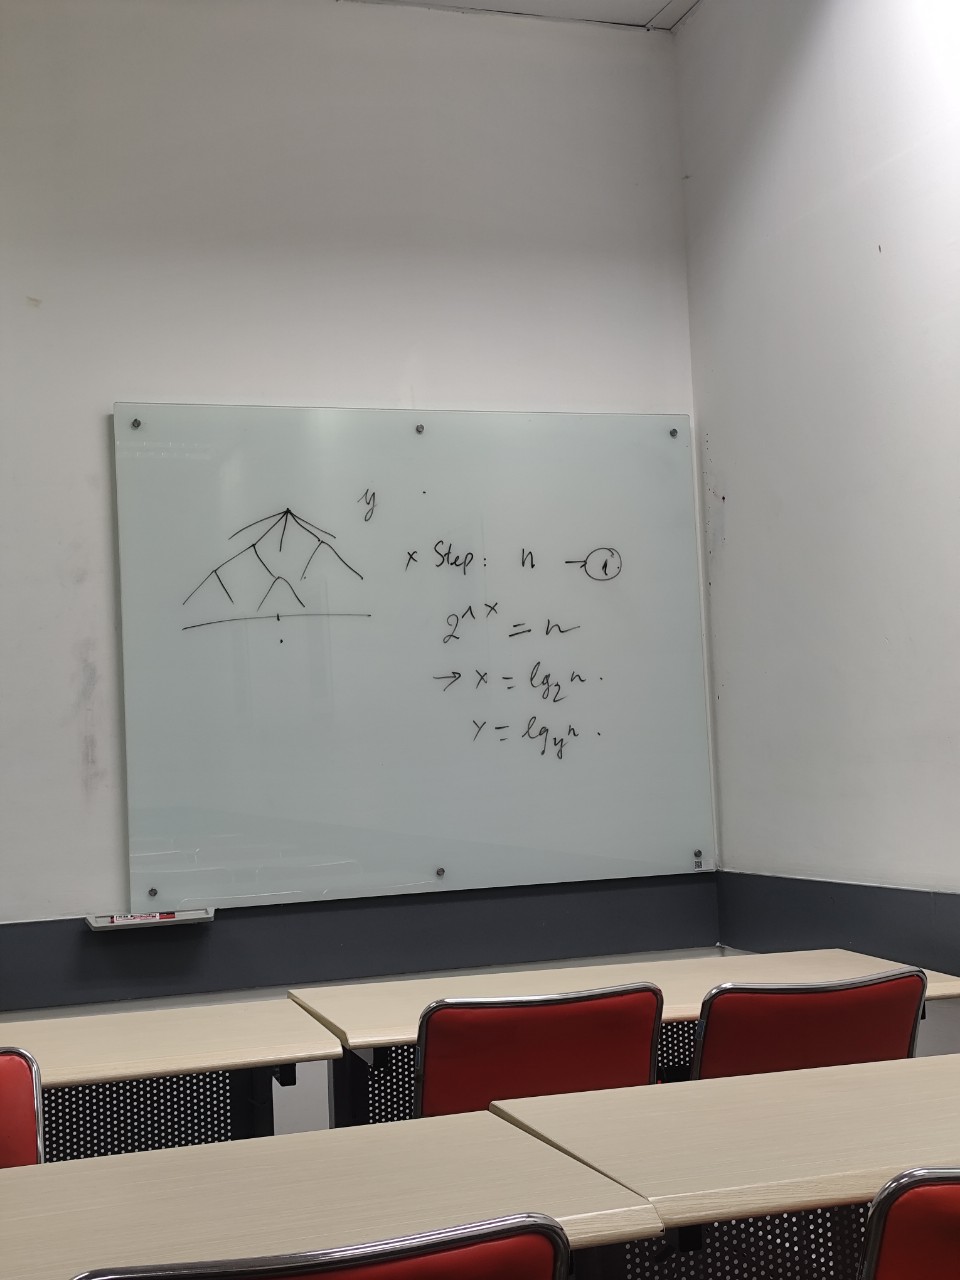 y
x Step: n → 1
2^x = n
→ x = lg₂n.
Y = lg_y n.